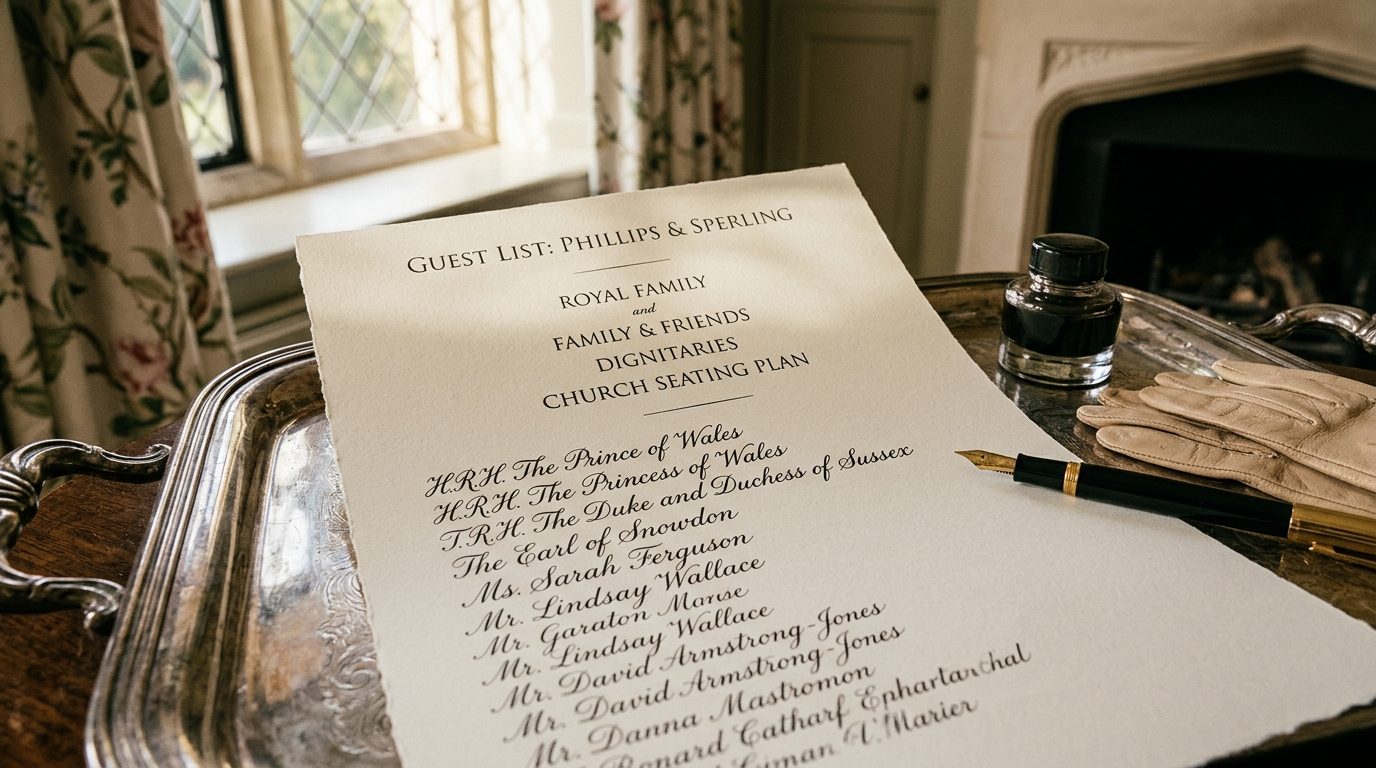 GUEST LIST: PHILLIPS & SPERLING
ROYAL FAMILY
and
FAMILY & FRIENDS
DIGNITARIES
CHURCH SEATING PLAN
H.R.H. The Prince of Wales
H.R.H. The Princess of Wales
T.R.H. The Duke and Duchess of Sussex
The Earl of Snowdon
Ms. Sarah Ferguson
Mr. Lindsay Wallace
Mr. Garaton
Mr. Lindsay Wallace
Mr. David Armstrong-Jones
Mr. David Armstrong-Jones
Mr. Danna Mastromon